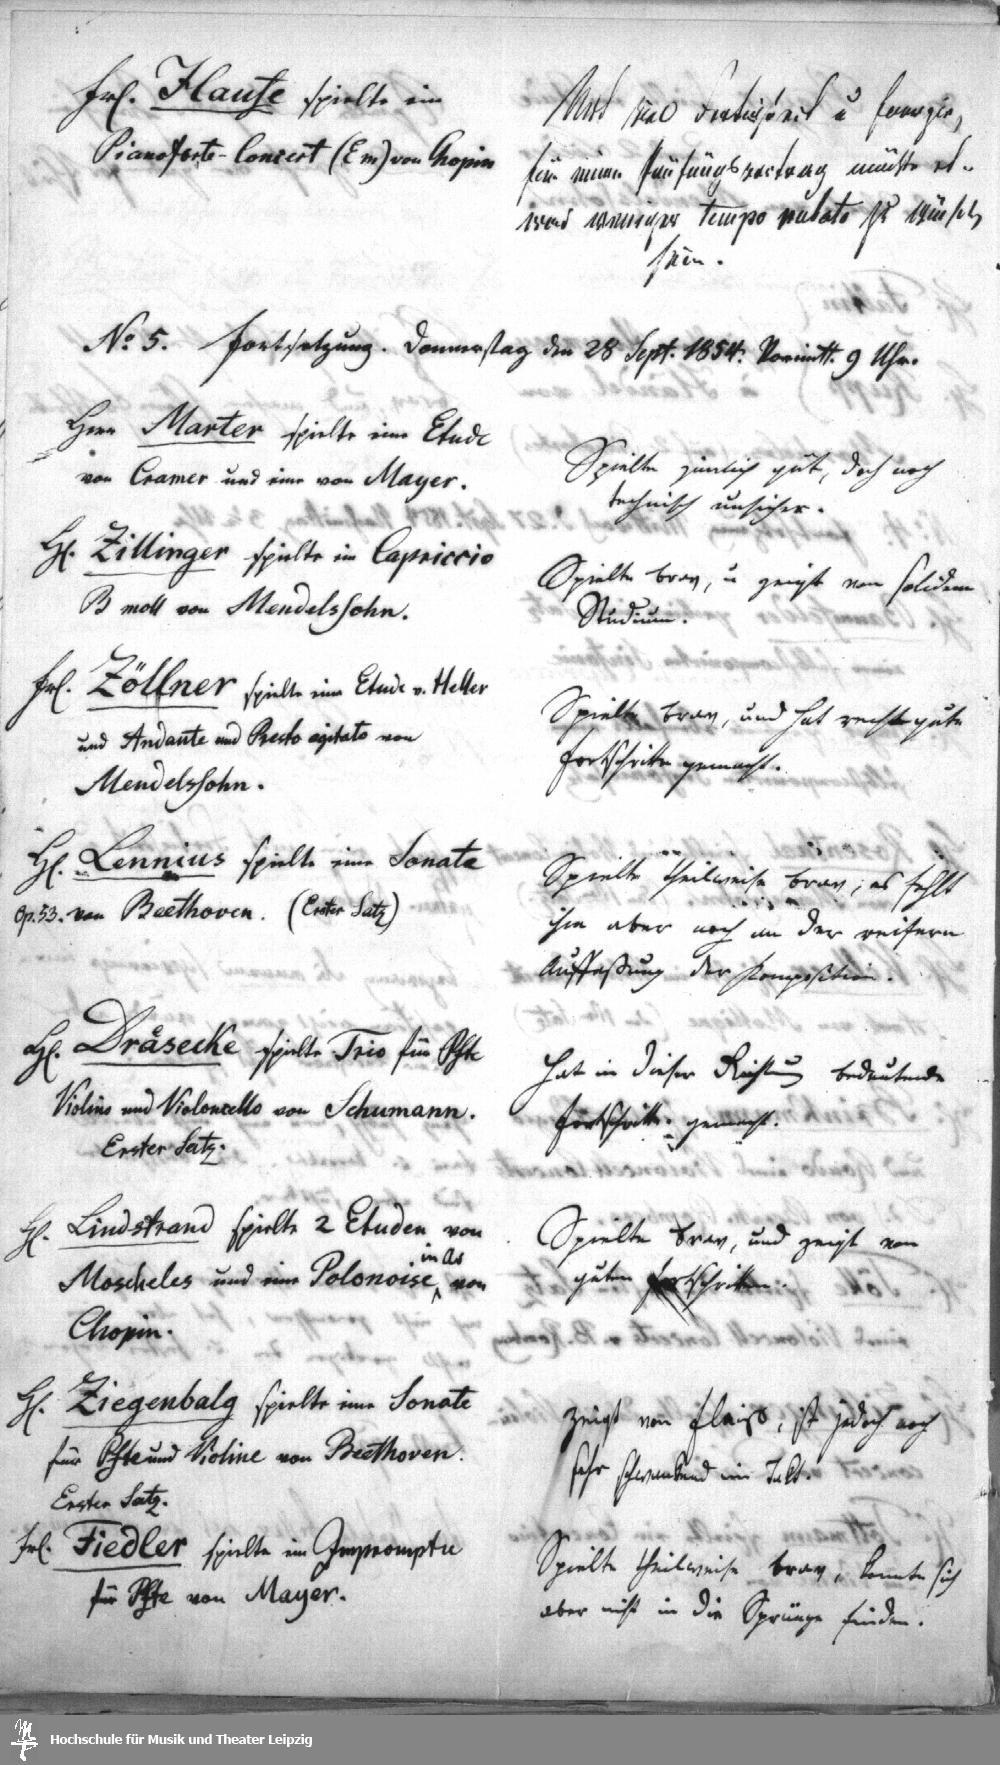 Frl. Haufe spielte ein
Pianoforte-Concert (Em) von Chopin
Mit viel Fertigkeit u Energie,
für einen Prüfungsvortrag möchte et-
was weniger tempo rubato zu wünsch
sein.
No. 5. Fortsetzung. Donnerstag den 28 Sept. 1854. Vormitt. 9 Uhr.
Herr Marter spielte eine Etude
von Cramer und eine von Mayer.
Spielte ziemlich gut, doch noch
technisch unsicher.
H. Zillinger spielte ein Capriccio
B moll von Mendelssohn.
Spielte brav, u zeigt von solidem
Studium.
Frl. Zöllner spielte eine Etude v. Heller
und Andante und Presto agitato von
Mendelssohn.
Spielte brav, und hat recht gute
Fortschritte gemacht.
H. Lennius spielte eine Sonate
Op. 53. von Beethoven. (Erster Satz)
Spielte theilweise brav; es fehlt
ihm aber noch an der reifern
Auffaßung der Komposition.
H. Dräsecke spielte Trio für Pfte
Violine und Violoncello von Schumann.
Erster Satz.
Hat in dieser Richtung bedeutende
Fortschritte gemacht.
H. Lindstrand spielte 2 Etuden von
Moscheles und eine Polonoise in As von
Chopin.
Spielte brav, und zeigt von
guten Fortschritten.
H. Ziegenbalg spielte eine Sonate
für Pfte und Violine von Beethoven.
Erster Satz.
Zeigt von Fleiß, ist jedoch noch
sehr schwankend im Takt.
Frl. Fiedler spielte ein Impromptu
für Pfte von Mayer.
Spielte theilweise brav, konnte sich
aber nicht in die Sprünge finden.
Hochschule für Musik und Theater Leipzig